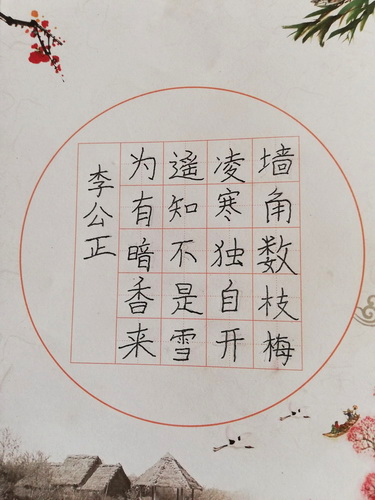 墙角数枝梅
凌寒独自开
遥知不是雪
为有暗香来
李公正